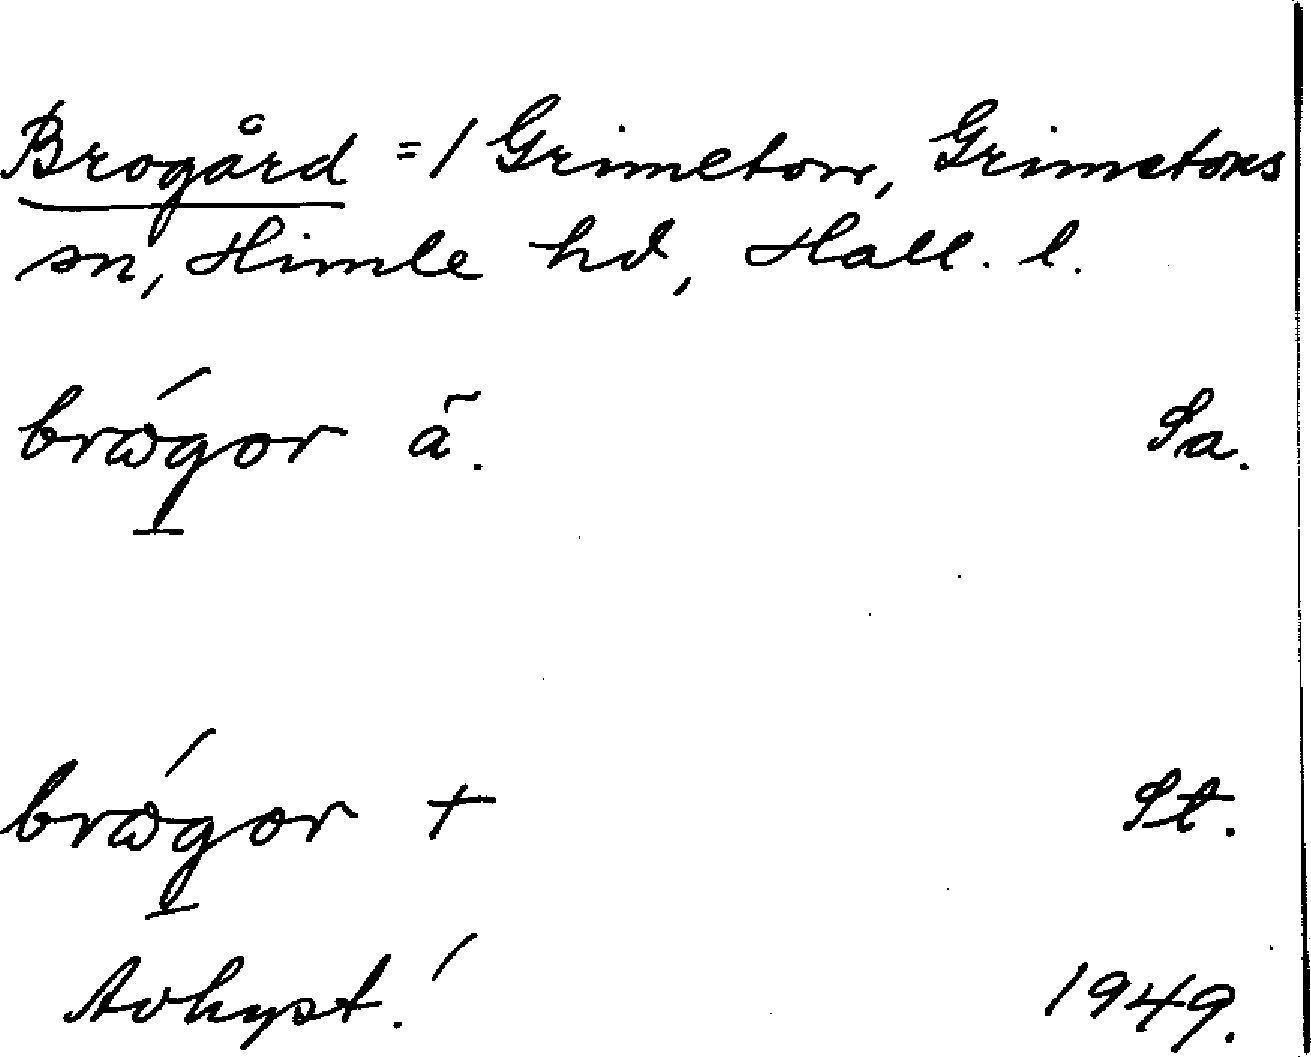 Brogård = 1 Grimeton, Grimetons
sn, Himle hd, Hall. l.
brωgor ā. Sa.
brωgor + St.
Avhyst.! 1949.